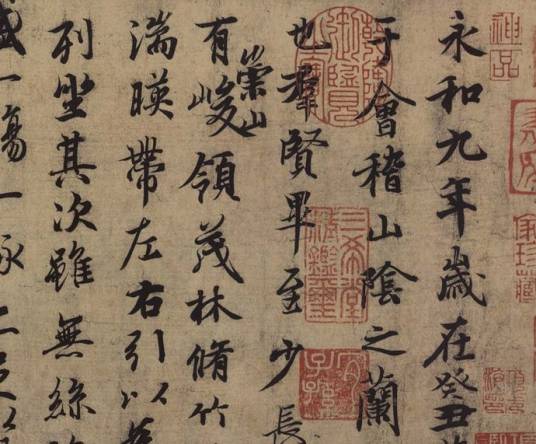 神品
永和九年歲在癸丑
于會稽山陰之蘭
也羣賢畢至少長
有崇山峻領茂林脩竹
湍暎帶左右引以
列坐其次雖無絲
一觴一詠
三希堂精鑑璽
宜子孫